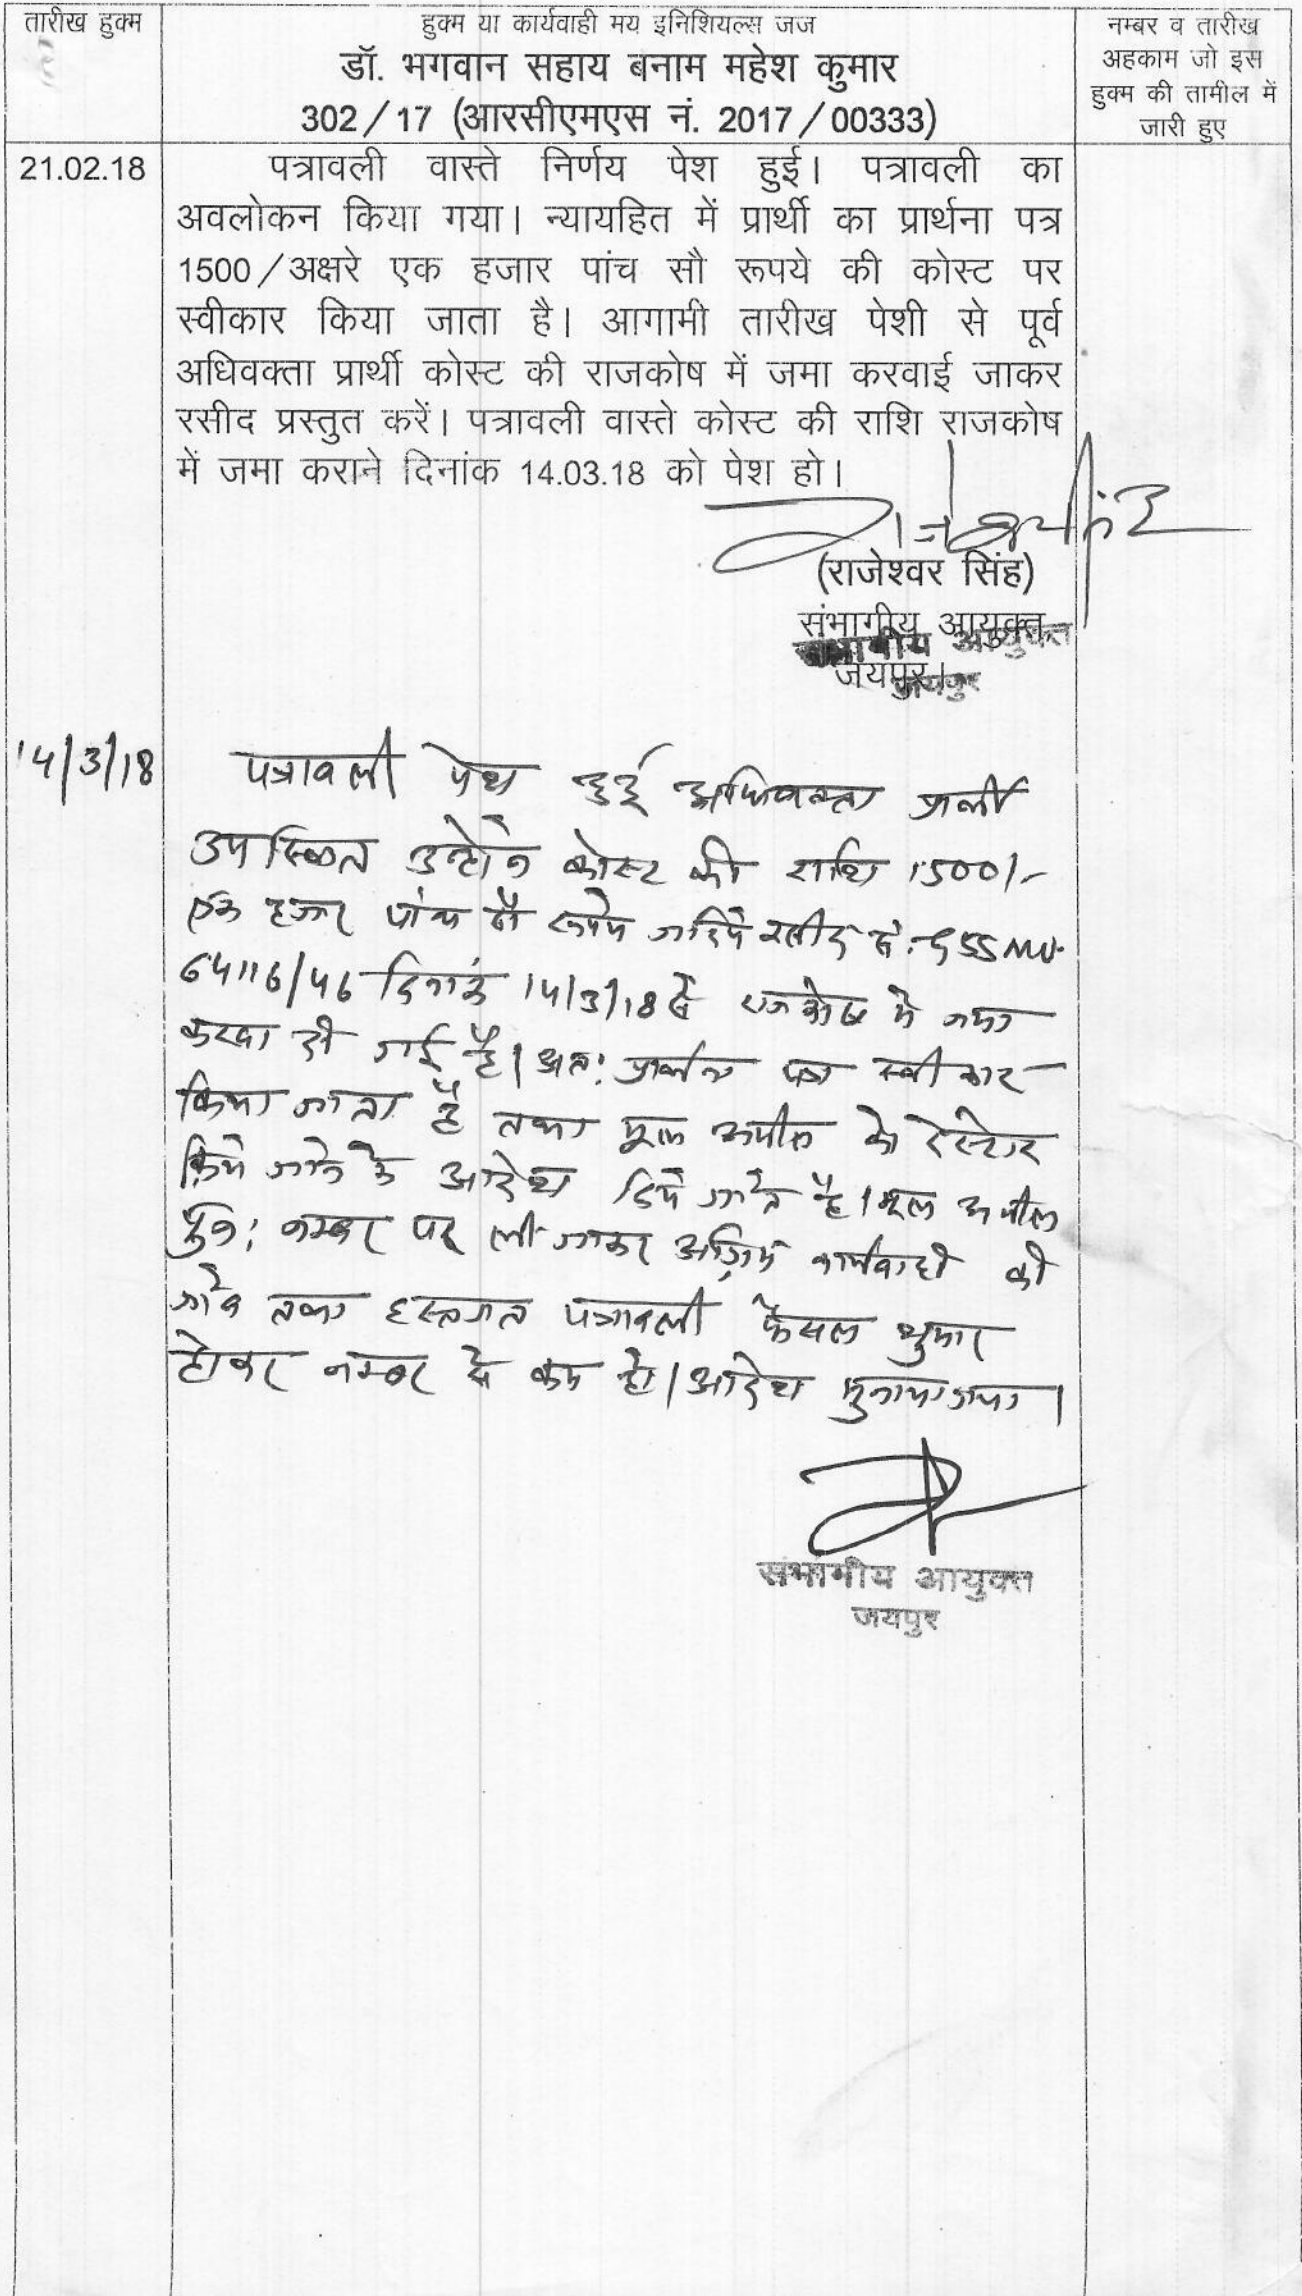 तारीख हुक्म
हुक्म या कार्यवाही मय इनिशियल्स जज
डॉ. भगवान सहाय बनाम महेश कुमार
302/17 (आरसीएमएस नं. 2017/00333)
नम्बर व तारीख
अहकाम जो इस
हुक्म की तामील में
जारी हुए
21.02.18
पत्रावली वास्ते निर्णय पेश हुई। पत्रावली का
अवलोकन किया गया। न्यायहित में प्रार्थी का प्रार्थना पत्र
1500/अक्षरे एक हजार पांच सौ रूपये की कोस्ट पर
स्वीकार किया जाता है। आगामी तारीख पेशी से पूर्व
अधिवक्ता प्रार्थी कोस्ट की राजकोष में जमा करवाई जाकर
रसीद प्रस्तुत करें। पत्रावली वास्ते कोस्ट की राशि राजकोष
में जमा कराने दिनांक 14.03.18 को पेश हो।
(राजेश्वर सिंह)
संभागीय आयुक्त
जयपुर।
संभागीय आयुक्त
जयपुर
14/3/18
पत्रावली पेश हुई अधिवक्ता प्रार्थी
उपस्थित उन्होंने कोस्ट की राशि 1500/-
एक हजार पांच सौ रूपये जरिये रसीद
64116/46 दिनांक 14/3/18 से राजकोष में जमा
करवा दी गई है। अतः प्रार्थना पत्र स्वीकार
किया जाता है तथा मूल अपील को रेस्टोर
किये जाने के आदेश दिये जाते है। मूल अपील
पुनः नम्बर पर ली जाकर अग्रिम कार्यवाही की
जावे तथा हस्तगत पत्रावली फैसल शुमार
होकर नम्बर से कम हो। आदेश सुनाया गया।
संभागीय आयुक्त
जयपुर